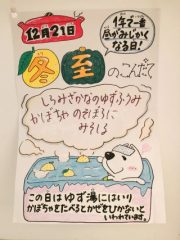 12月21日
1年で一番
昼がみじかく
なる日!
冬至のこんだて
しろみざかなのゆずふうみ
かぼちゃのそぼろに
みそしる
この日はゆず湯にはいり
かぼちゃをたべるとかぜをひかないと
いわれています。